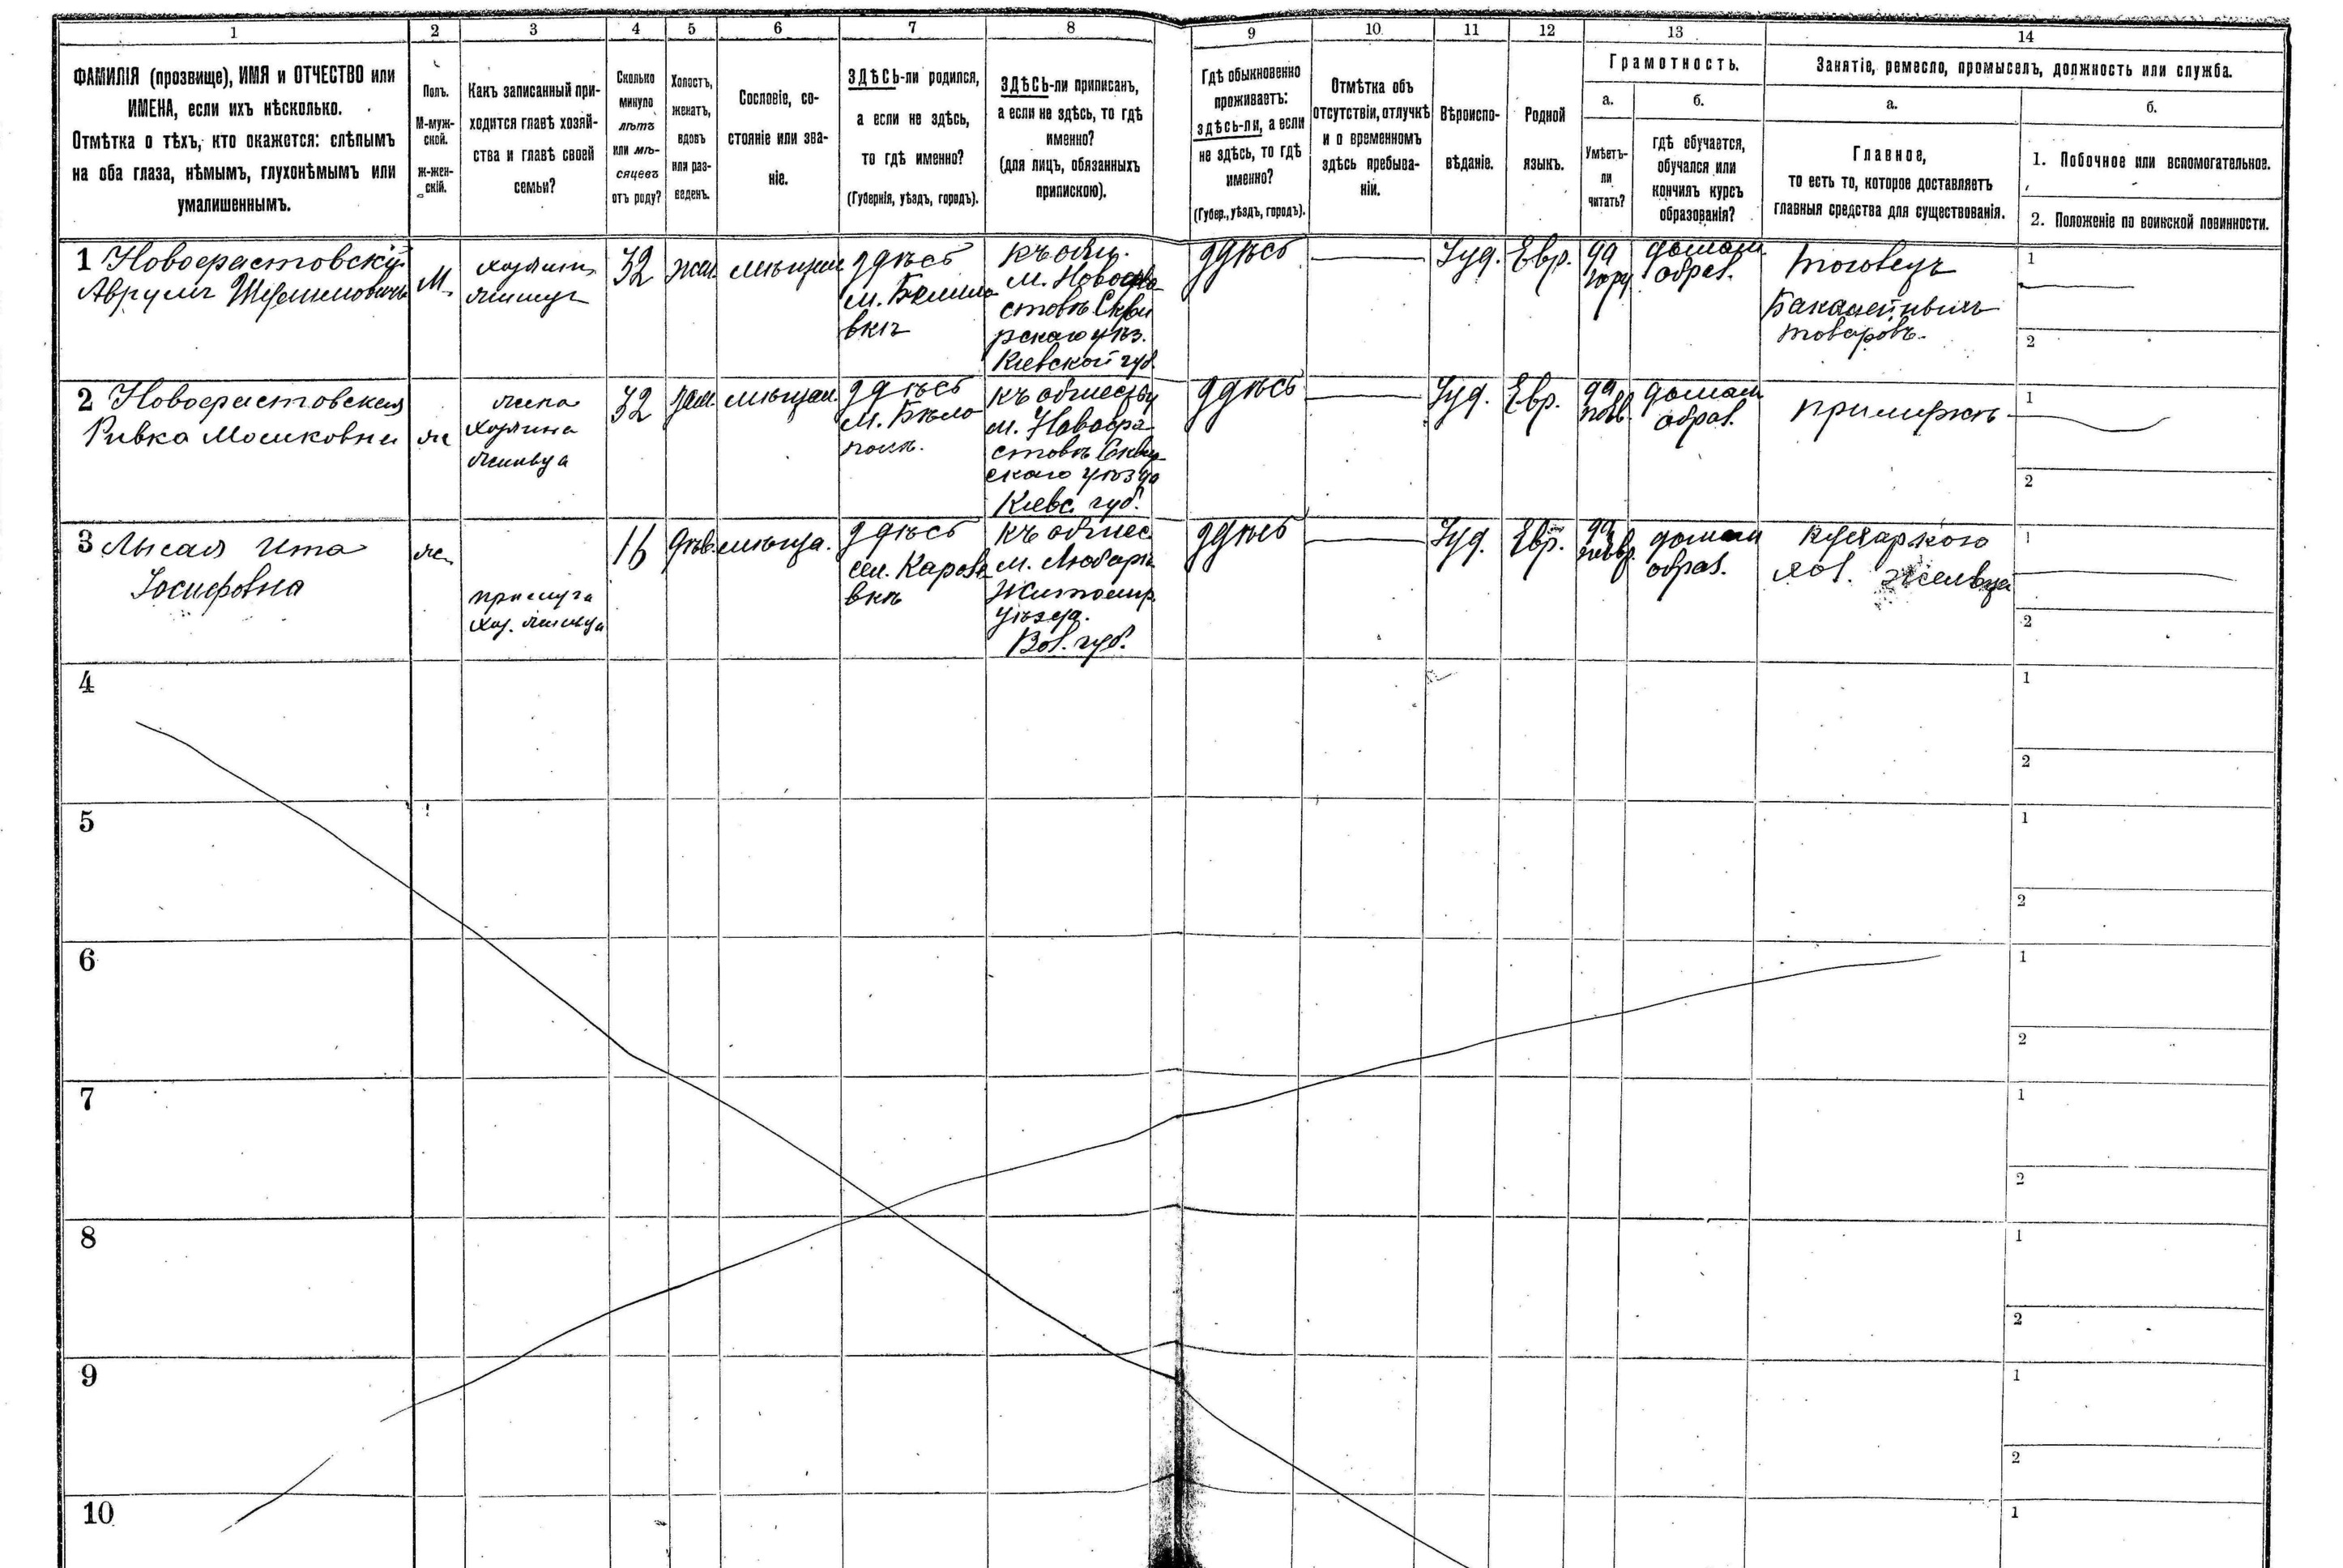 1 2 3 4 5 6 7 8 9 10 11 12 13 14
ФАМИЛІЯ (прозвище), ИМЯ и ОТЧЕСТВО или
ИМЕНА, если ихъ нѣсколько.
Отмѣтка о тѣхъ, кто окажется: слѣпымъ
на оба глаза, нѣмымъ, глухонѣмымъ или
умалишеннымъ.
Полъ.
М-муж-
ской.
ж-жен-
скій.
Какъ записанный при-
ходится главѣ хозяй-
ства и главѣ своей
семьи?
Сколько
минуло
лѣтъ
или мѣ-
сяцевъ
отъ роду?
Холостъ,
женатъ,
вдовъ
или раз-
веденъ.
Сословіе, со-
стояніе или зва-
ніе.
ЗДѢСЬ-ли родился,
а если не здѣсь,
то гдѣ именно?
(Губернія, уѣздъ, городъ).
ЗДѢСЬ-ли приписанъ,
а если не здѣсь, то гдѣ
именно?
(для лицъ, обязанныхъ
припискою).
Гдѣ обыкновенно
проживаетъ:
здѣсь-ли, а если
не здѣсь, то гдѣ
именно?
(Губер., уѣздъ, городъ).
Отмѣтка объ
отсутствіи, отлучкѣ
и о временномъ
здѣсь пребыва-
ніи.
Вѣроиспо-
вѣданіе.
Родной
языкъ.
Грамотность.
а.
Умѣетъ-
ли
читать?
б.
гдѣ обучается,
обучался или
кончилъ курсъ
образованія?
Занятіе, ремесло, промыселъ, должность или служба.
а.
Главное,
то есть то, которое доставляетъ
главныя средства для существованія.
б.
1. Побочное или вспомогательное.
2. Положеніе по воинской повинности.
1 Новофастовскій
Аврумъ
М.
хозяинъ
32
жен.
мѣщан
здѣсь
м.
вкѣ
къ общ.
м. Новофа-
стовъ Скви
рскаго уѣз.
Кіевской губ.
здѣсь
Іуд.
Евр.
да
домаш
образ.
Торговецъ
Бакалейныхъ
товаровъ.
1
2
2 Новофастовская
Ривка Мошковна
ж
жена
хозяина
32
зам.
мѣщан.
здѣсь
м. Бѣло
полъ.
къ обществу
м. Новофа
стовъ Скви
скаго уѣзда
Кіевс. губ.
здѣсь
Іуд.
Евр.
да
домаш
образ.
при мужѣ
1
2
3 Лысая Ита
Іосифовна
ж
прислуга
хоз.
16
дѣв.
мѣща.
здѣсь
сел. Карова
вкѣ
къ общес.
м. Любаръ
Житомир.
уѣзда.
Вол. губ.
здѣсь
Іуд.
Евр.
да
домаш
образ.
Кухаркою
хоз.
1
2
4
1
2
5
1
2
6
1
2
7
1
2
8
1
2
9
1
2
10
1